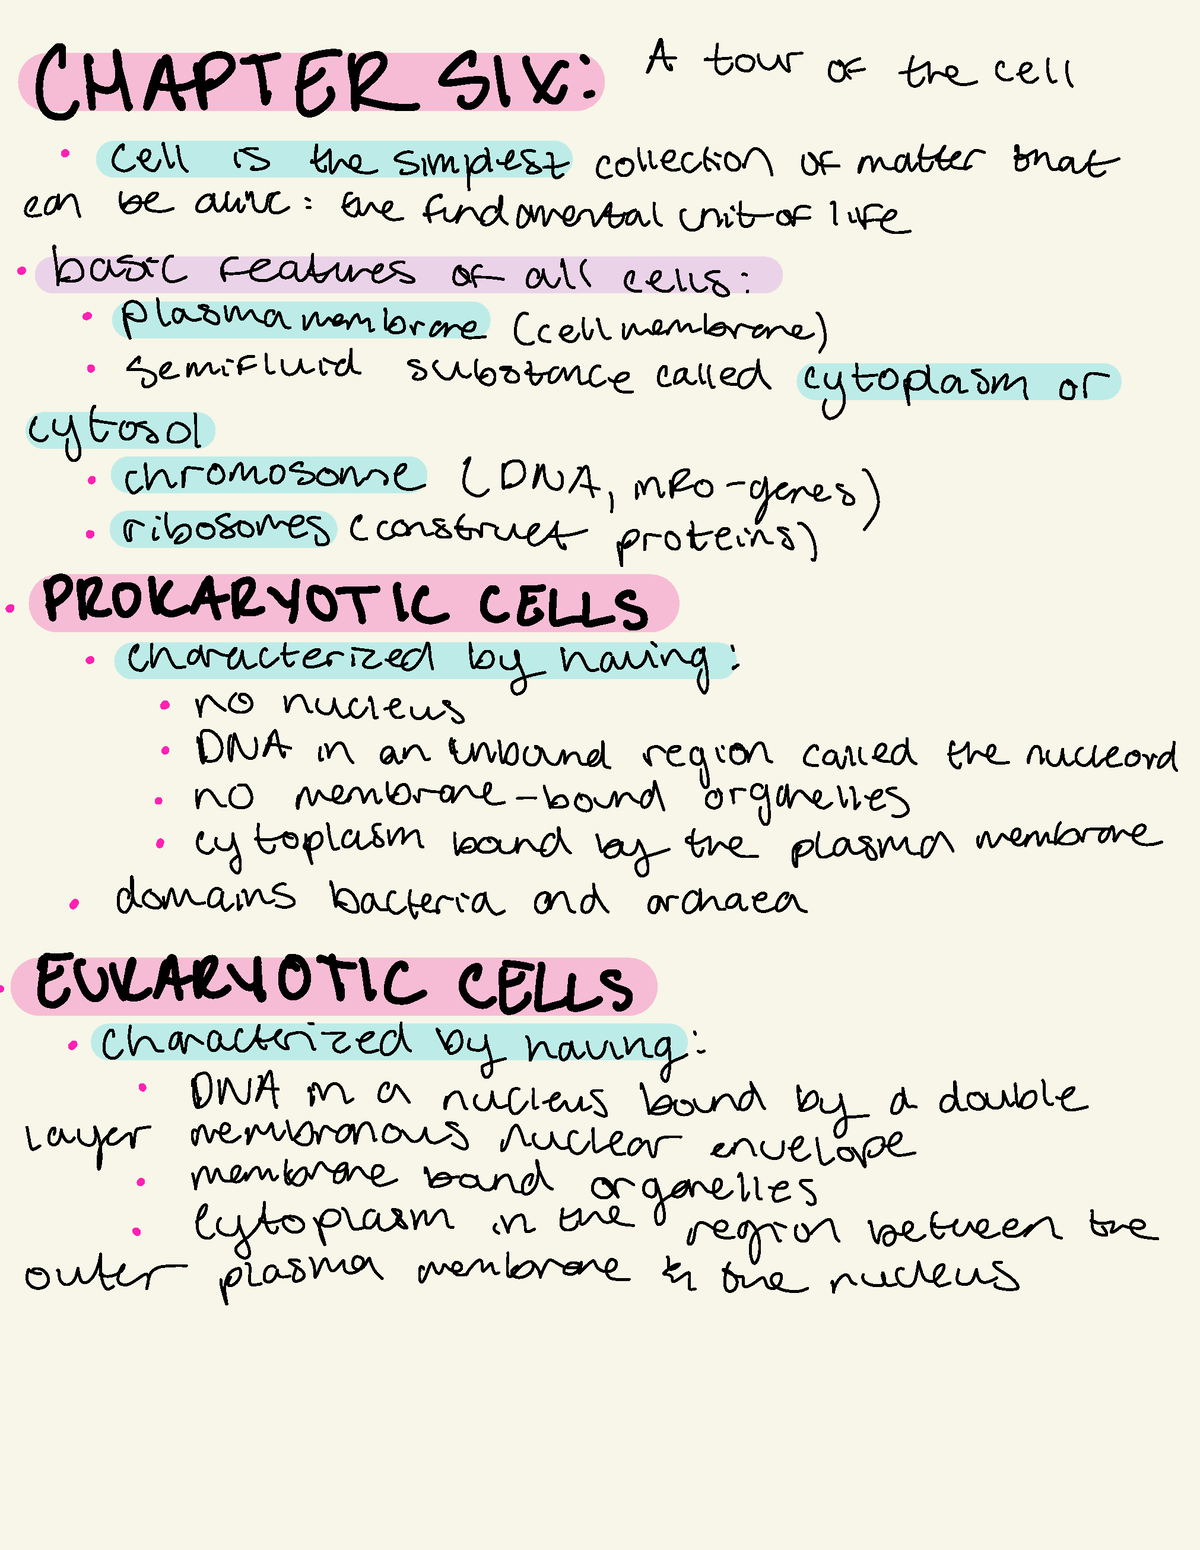 CHAPTER SIX: A tour of the cell
• cell is the simplest collection of matter that
can be alive: the fundamental unit of life
• basic features of all cells:
• plasma membrane (cell membrane)
• semifluid substance called cytoplasm or
cytosol
• chromosome (DNA, info-genes)
• ribosomes (construct proteins)
• PROKARYOTIC CELLS
• characterized by having:
• no nucleus
• DNA in an unbound region called the nucleoid
• no membrane-bound organelles
• cytoplasm bound by the plasma membrane
• domains bacteria and archaea
• EUKARYOTIC CELLS
• characterized by having:
• DNA in a nucleus bound by a double
layer membranous nuclear envelope
• membrane bound organelles
• Cytoplasm in the region between the
outer plasma membrane & the nucleus